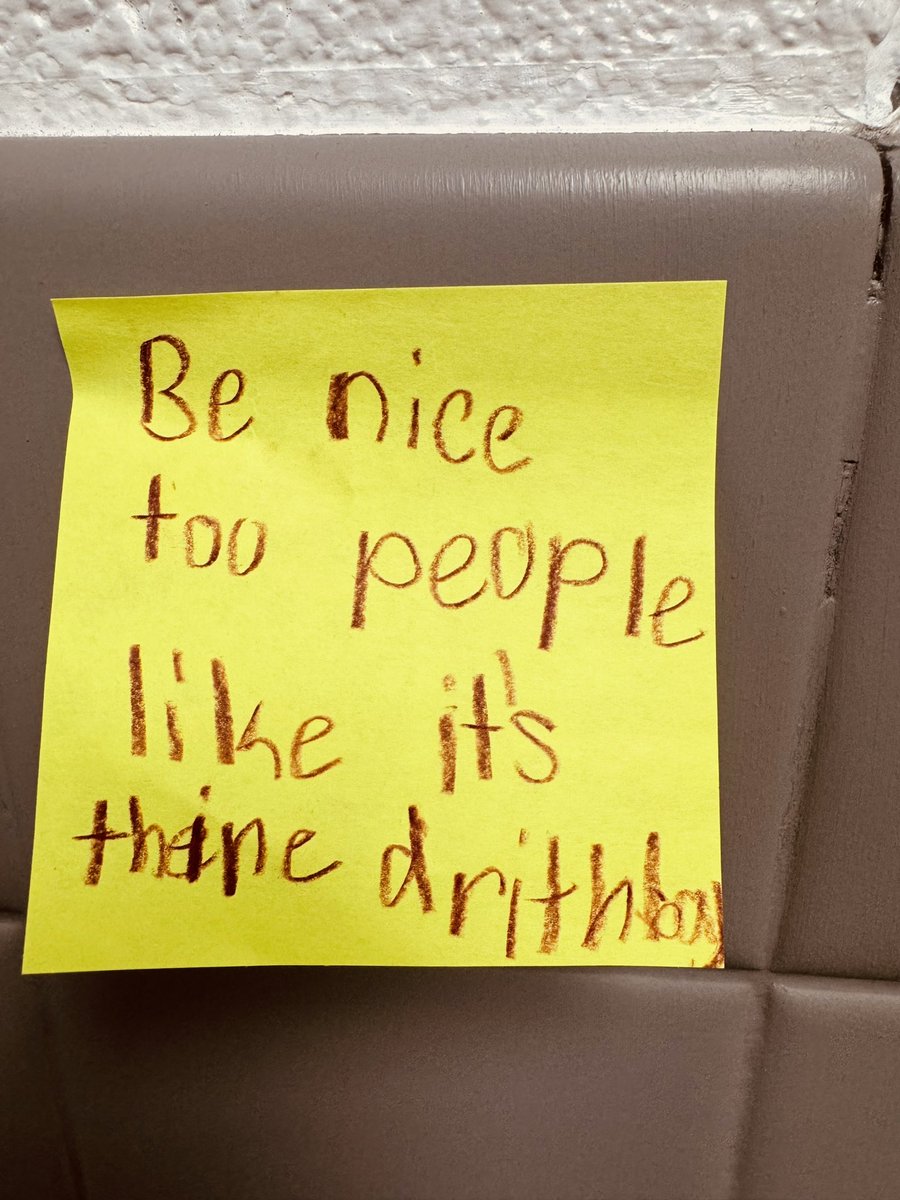 Be nice
too people
like it's
thaine drithbay